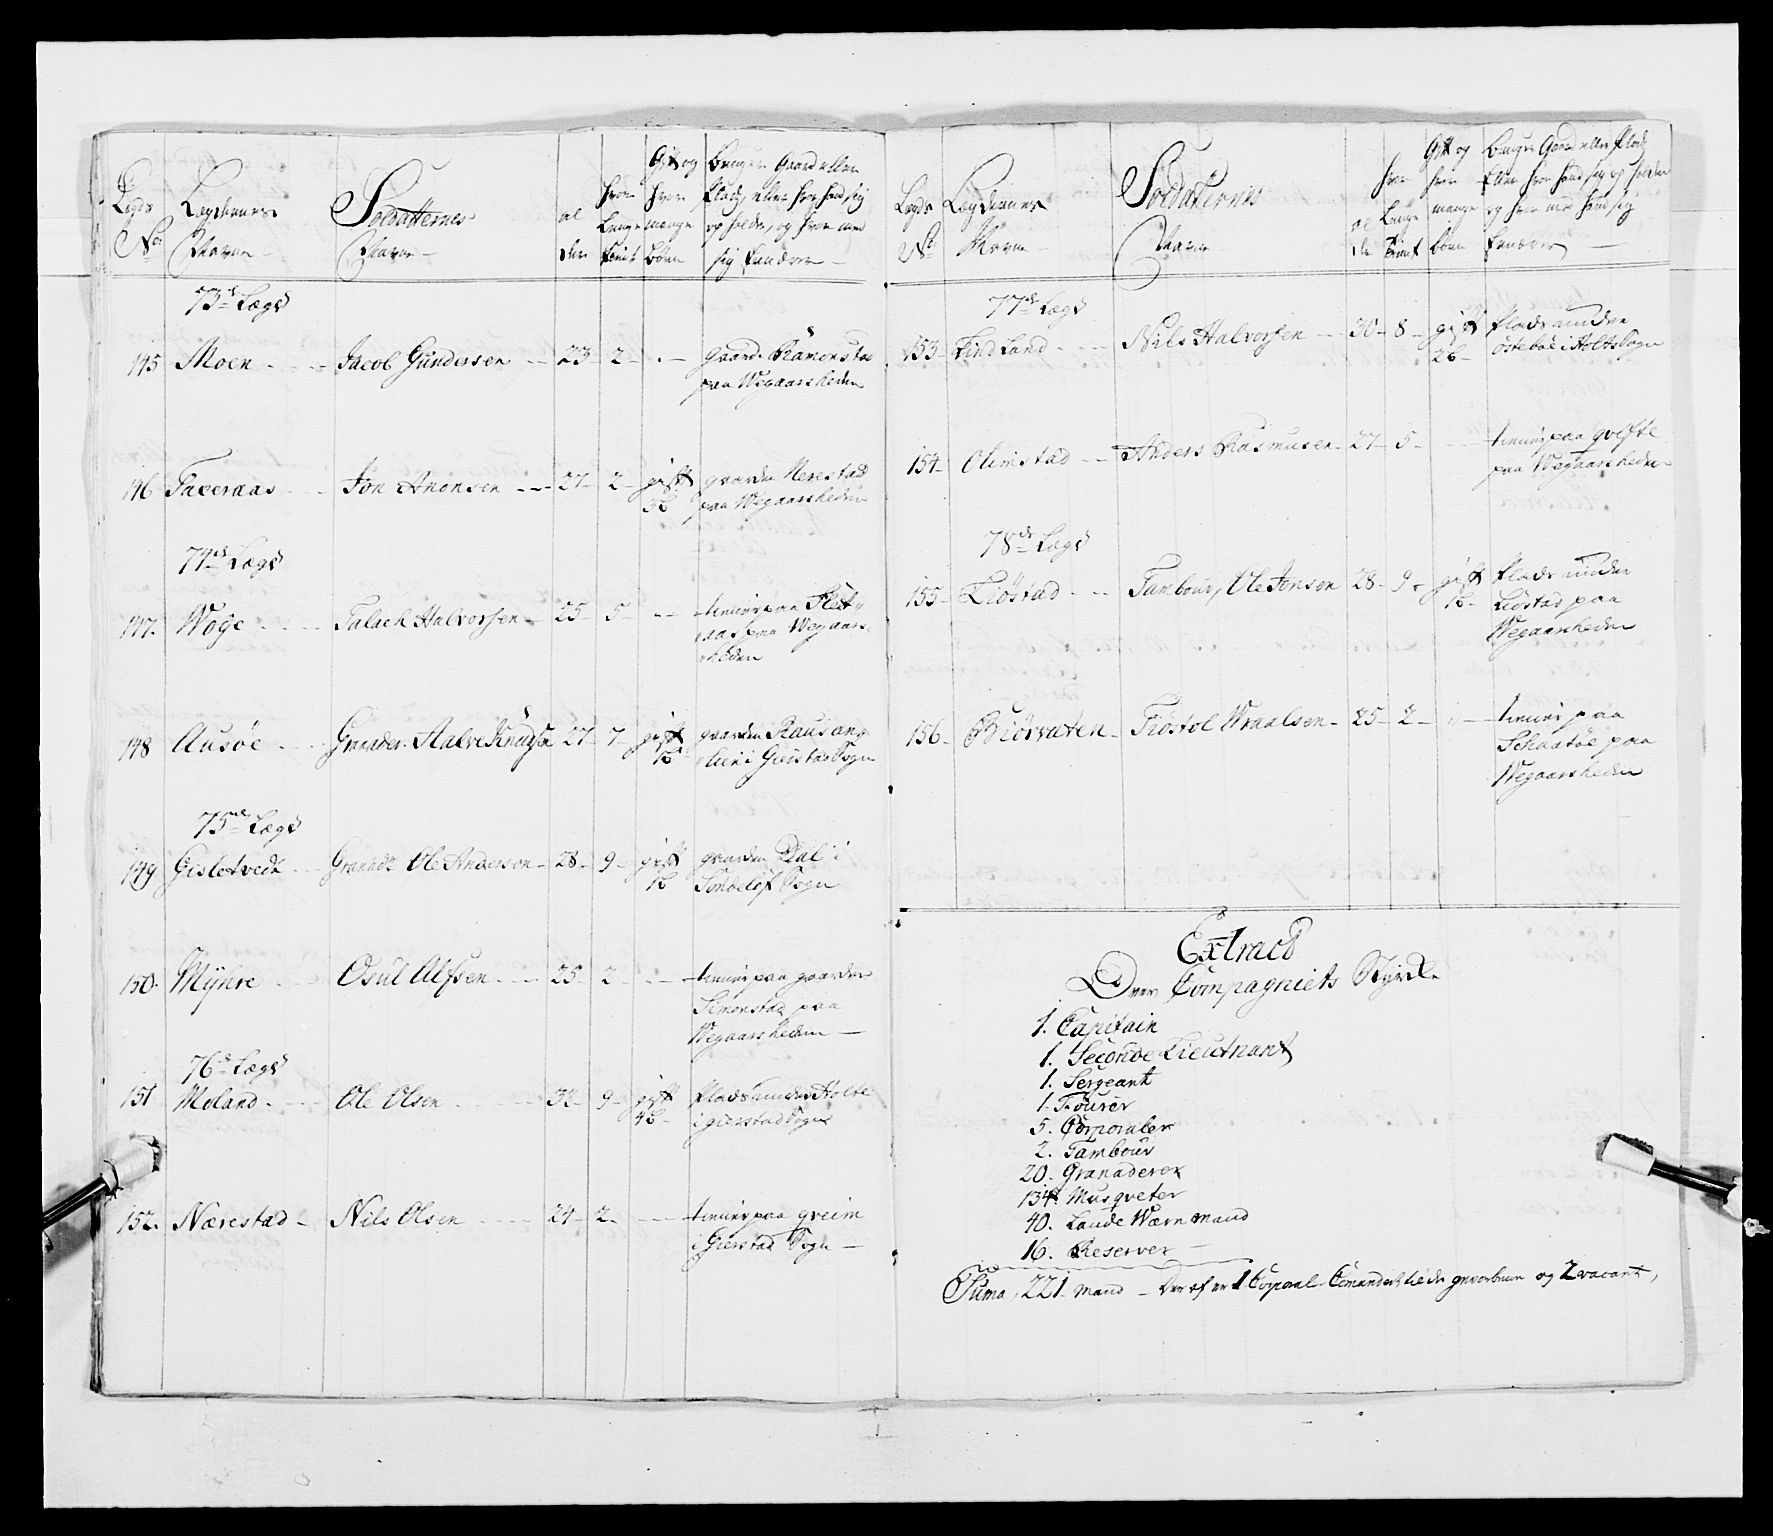 Legds No. | Lægdernes Navne | Soldatternes Navne | al der | hvor lenge tient | Gift og hvor mange børn | bruger Gaard eller Plads, eller hvor hand sig opholder, og hvor med sig ernærer
73de Lægd
145 Moen Jacob Gundersen 23 2 gaard Ramonstad
paa Wegaarsheden
146 Faceraas Jon Anonsen 27 2 gift gaarden Nerestad
3b paa Wegaarsheden
74de Lægd
147. Woge Talack Halvorsen 25 5 tienner paa Flat-
aas paa Wegaars-
heden
148 Ausöe Granader Aalve Knudsen 27 7 gift gaarden Rausand
1b lien i Gierstad Sogn
75de Lægd
149 Gisletvedt Granadr. Ole Anderson 28 9 gift gaarden Dal i
1b Söndeløf Sogn
150. Mÿhre Osul Alfsen 25 2 tienner paa gaarden
Simonstad paa
Wegaarsheden
76de Lægd
151 Moland Ole Olsen 32 9 gift Plads under Holte
4b i gierstad Sogn
152. Nærestad Nils Olsen 24 2 tienner paa qveim
i Gierstad Sogn
Legds No. | Lægdernes Navne | Soldatternes Navne | al der | hvor lenge tient | Gift og hvor mange børn | bruger Gaard eller Plads eller hvor hand sig opholder og hvor med hand sig ernærer
77de Lægd
153 Lindland Nils Halvorsen 30 8 gift Plads under
2b östeböe i Holts Sogn
154 Olimstad Anders Rasmusen 27 5 tienner paa qvefte
paa Wegaarsheden
78de Lægd
155 Liöstad Tambour, Ole Jonsen 28 9 gift Plads under
1b Liöstad paa
Wegaarsheden
156 Biörvaten Tiostol Wraalsen 25 2 tienner paa
Schaatöe paa
Wegaarsheden
Extract
Over Compagniets Styrke
1. Capitain
1. Seconde Lieutnant
1. Sergeant
1. Fourer
5. Corporaler
2. Tambour
20. Granaderer
134. Musqveter
40. Lande Værn Mand
16. Reserver
Suma, 221 Mand - Der af er 1 Corporal Comanderet til de gevorbne og 2 vacant,